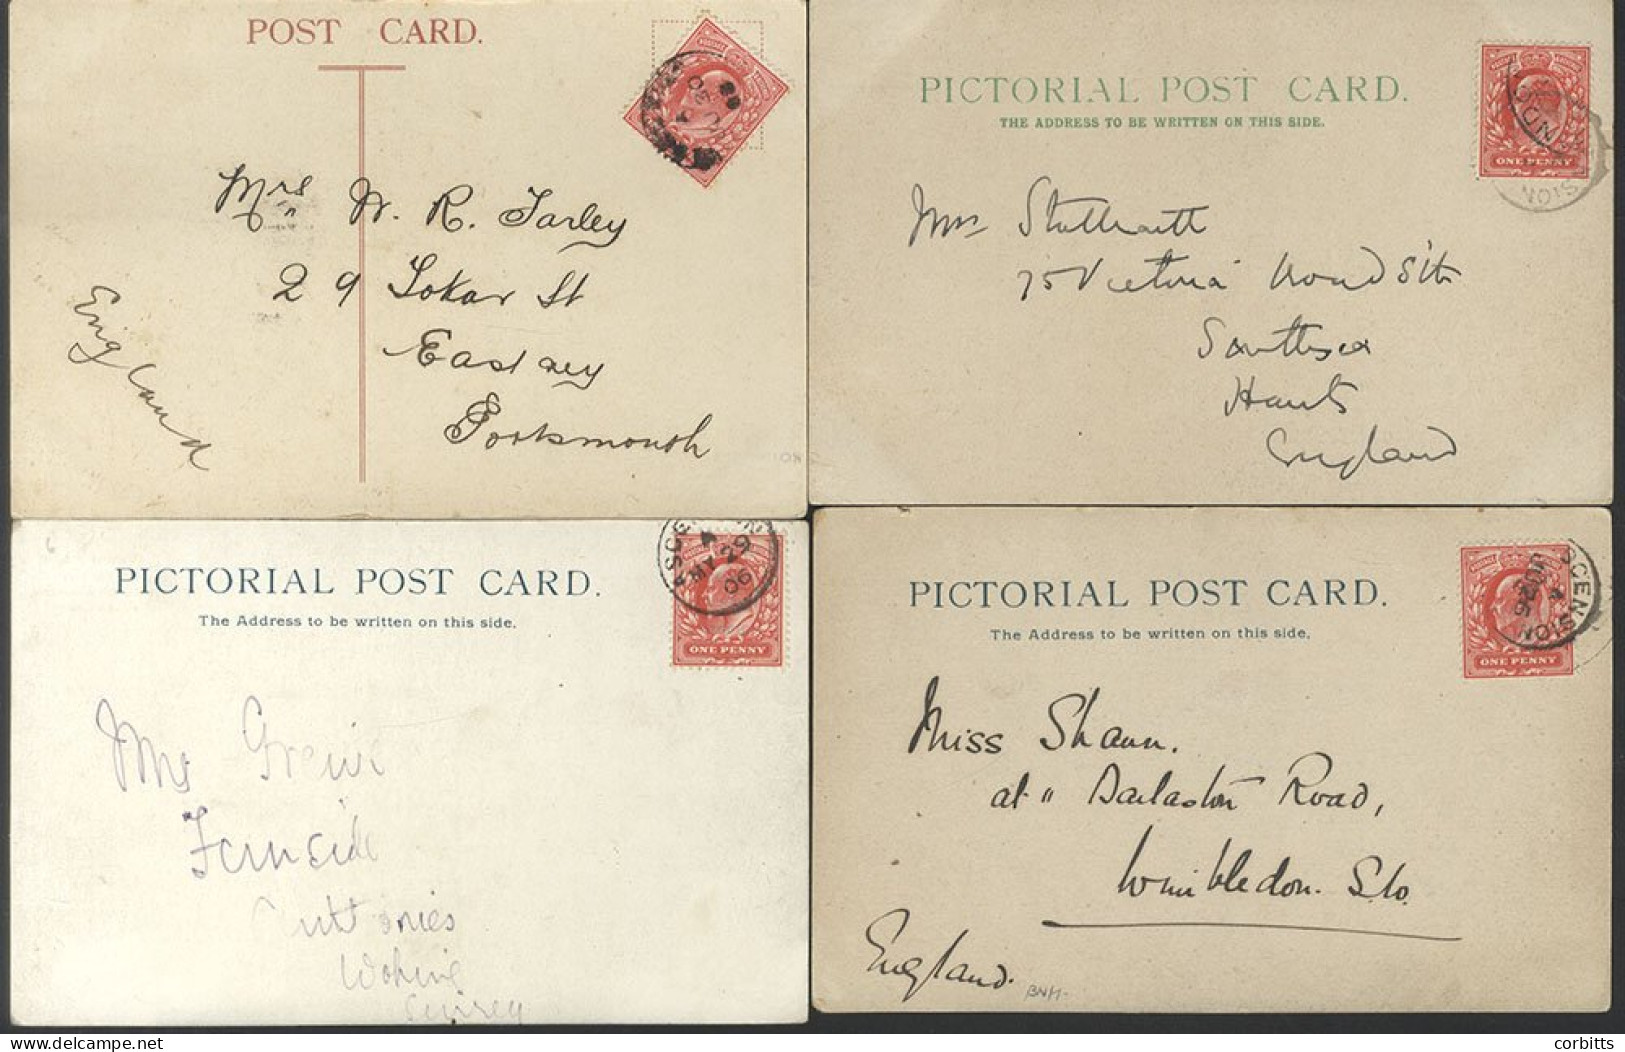 POST CARD.
Mrs W. R. Farley
29 Tokar St
Eastney
Portsmouth
England
PICTORIAL POST CARD.
THE ADDRESS TO BE WRITTEN ON THIS SIDE.
ONE PENNY
Mrs
75 Victoria Road Sth
Southsea
Hants
England
PICTORIAL POST CARD.
The Address to be written on this side.
MR 29
06
ONE PENNY
Mrs
Fernside
Woking
Surrey
PICTORIAL POST CARD.
The Address to be written on this side.
SCENSION
ONE PENNY
Miss Shann.
at 11 Darlaston Road,
Wimbledon. S.W.
England.
BNM-
corbitts